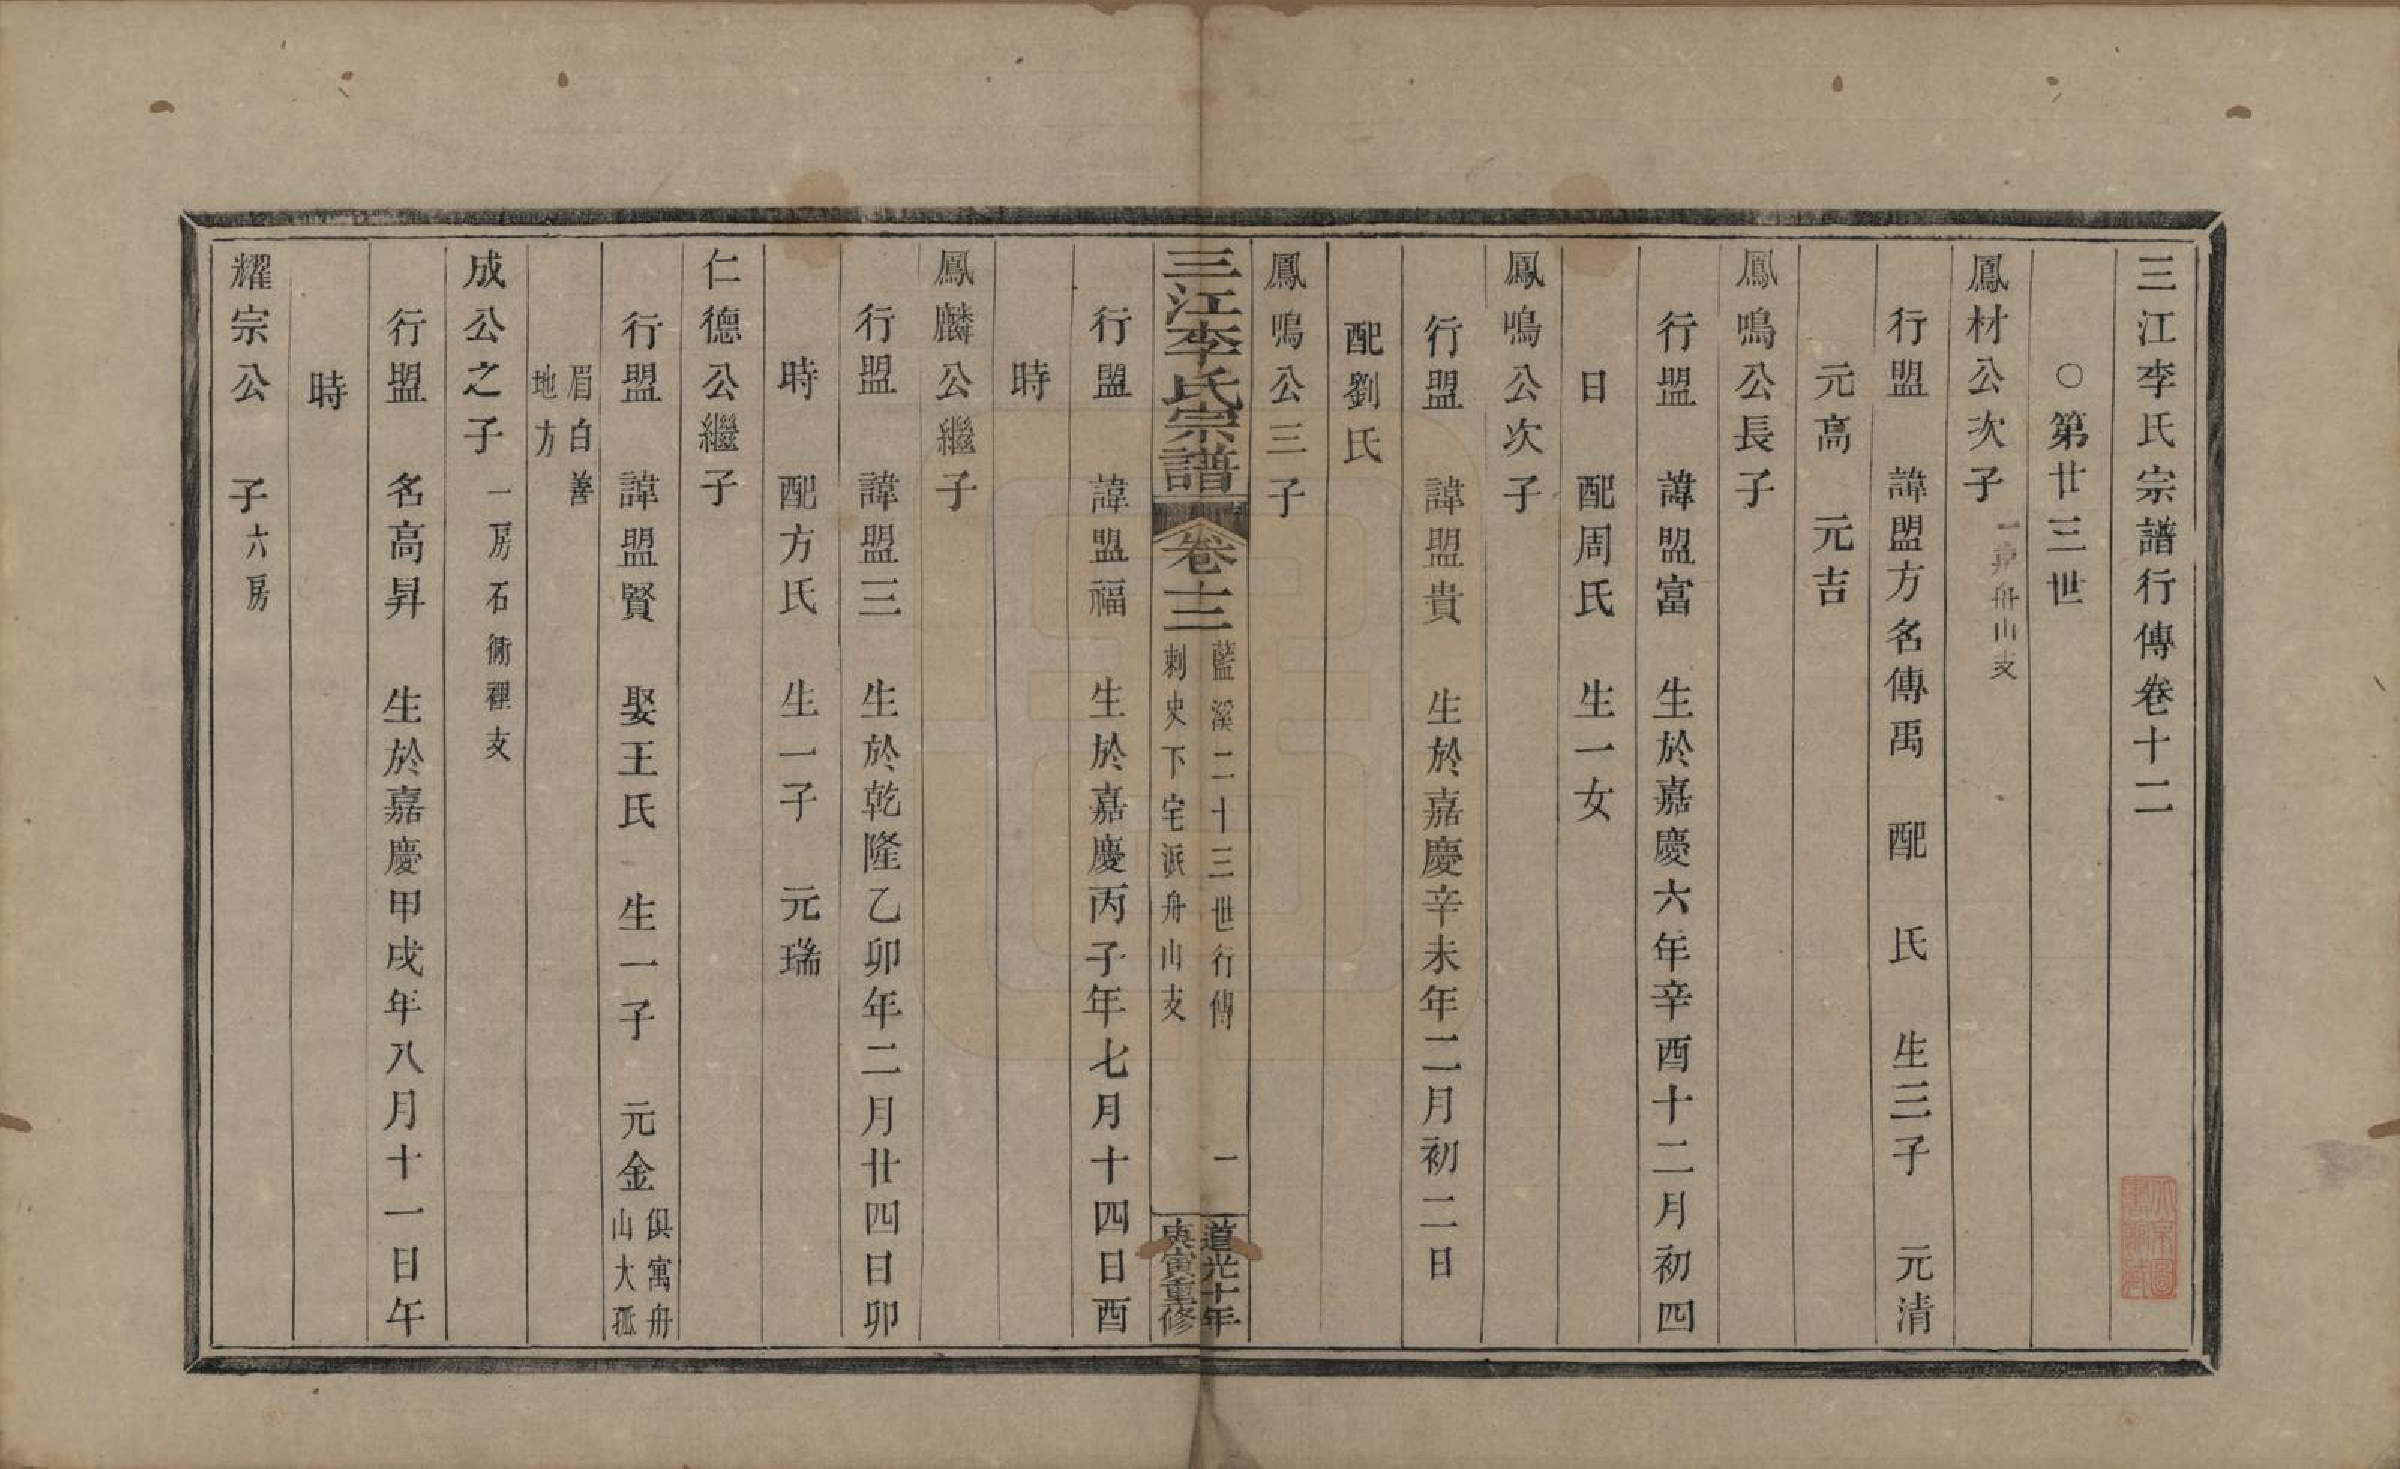 三江李氏宗譜行傳卷十二
○第廿三世
鳳材公次子 一章舟山支
行盟 諱盟方名傳禹 配 氏 生三子 元清
元高 元吉
鳳鳴公長子
行盟 諱盟富 生於嘉慶六年辛酉十二月初四
日 配周氏 生一女
鳳鳴公次子
行盟 諱盟貴 生於嘉慶辛未年二月初二日
配劉氏
鳳鳴公三子
三江李氏宗譜 卷十二 藍溪二十三世行傳 一 道光十年
刺史下宅派舟山支 庚寅重修
行盟 諱盟福 生於嘉慶丙子年七月十四日酉
時
鳳麟公繼子
行盟 諱盟三 生於乾隆乙卯年二月廿四日卯
時 配方氏 生一子 元瑞
仁德公繼子
行盟 諱盟賢 娶王氏 生一子 元金 俱寓舟
山大孤
眉白善
地方
成公之子 一房石衕裡支
行盟 名高昇 生於嘉慶甲戌年八月十一日午
時
耀宗公 子六房